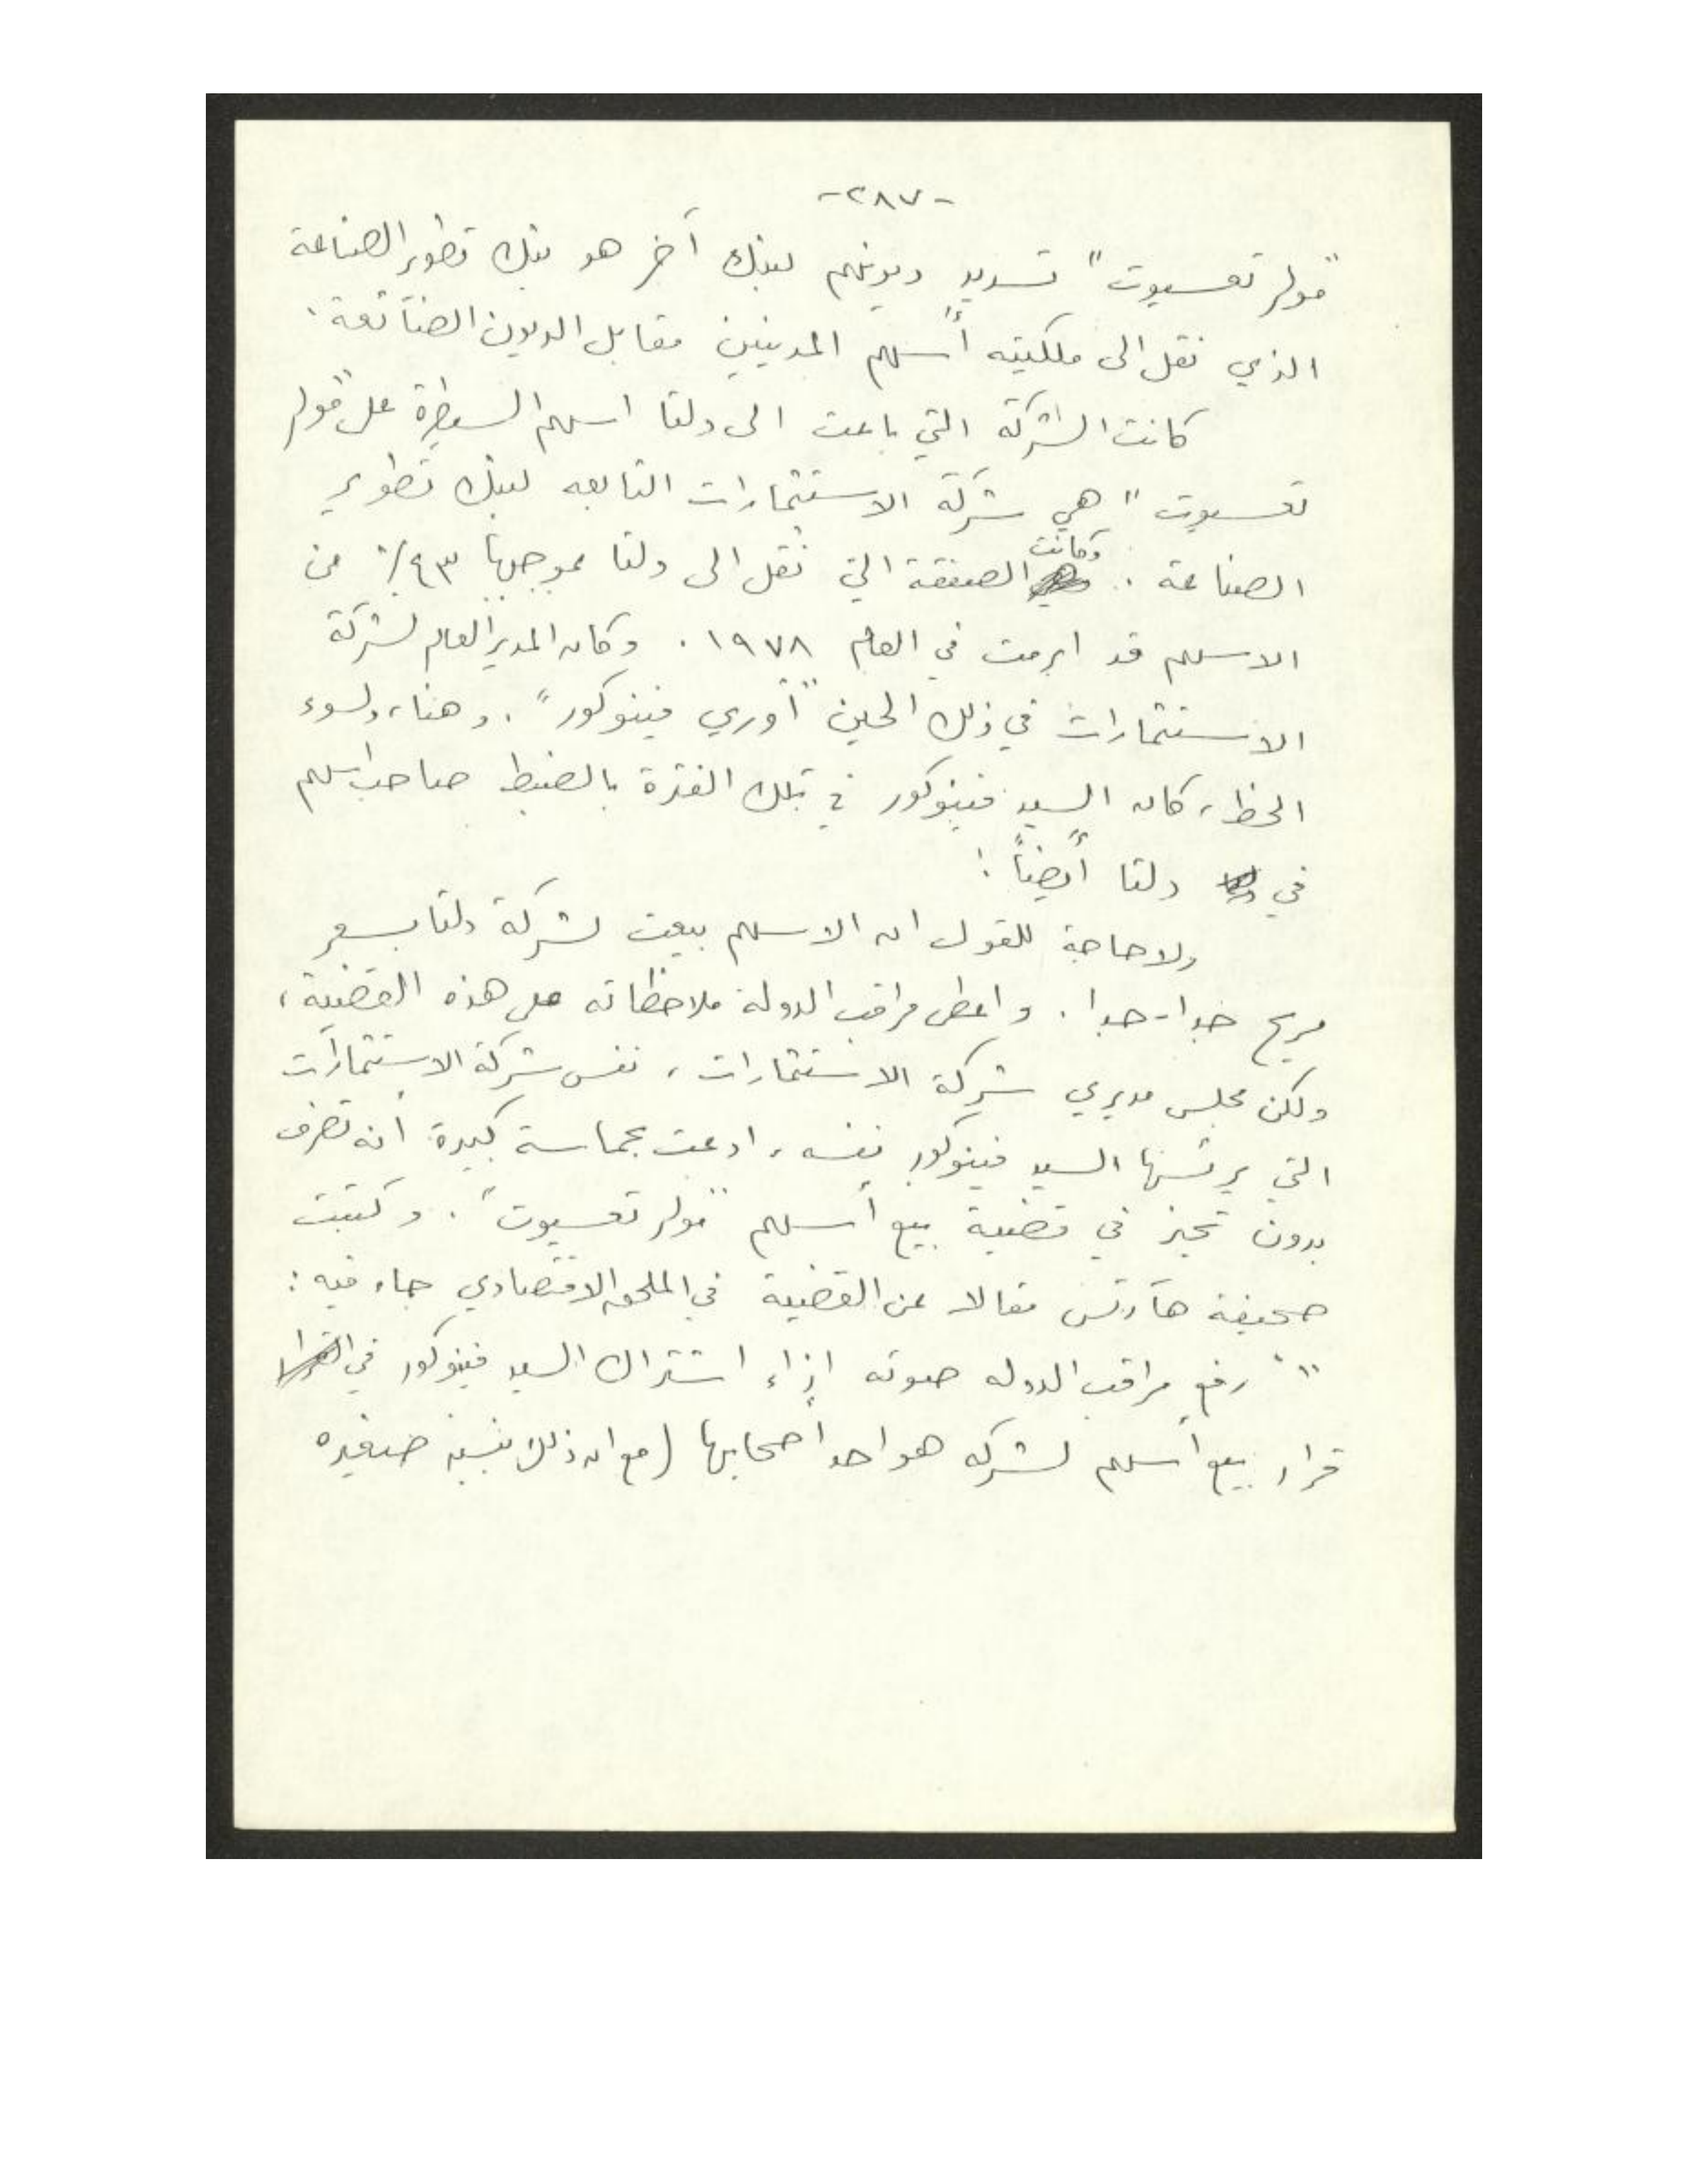 -٢٨٧-
"مولر تعسيوت" تسديد ديونهم لبنك آخر هو بنك تطوير الصناعة
الذي نقل الى ملكيته أسهم المدينين مقابل الديون الضائعة.
كانت الشركة التي باعت الى دلتا اسهم السيطرة على "مولر
تعسيوت" هي شركة الاستثمارات التابعه لبنك تطوير
الصناعة. وكانت الصفقة التي نقل الى دلتا بموجبها ٤٣٪ من
الاسهم قد ابرمت في العام ١٩٧٨. وكان المدير العام لشركة
الاستثمارات في ذلك الحين "أوري فينوكور". وهنا، ولسوء
الحظ، كان السيد فينوكور في تلك الفترة بالضبط صاحب اسهم
في دلتا أيضاً!
ولا حاجة للقول ان الاسهم بيعت لشركة دلتا بسعر
مريح جدا-جدا. واعطى مراقب الدولة ملاحظاته على هذه القضية،
ولكن مجلس مديري شركة الاستثمارات، نفس شركة الاستثمارات
التي يرئسها السيد فينوكور نفسه، ادعت بحماسة كبيرة أنه تصرف
بدون تحيز في قضية بيع أسهم "مولر تعسيوت". وكتبت
صحيفة هآرتس مقالا عن القضية في الملحق الاقتصادي جاء فيه:
"رفع مراقب الدوله صوته إزاء اشتراك السيد فينوكور في
قرار بيع أسهم لشركه هو احد أصحابها (مع ان ذلك بنسبه صغيره